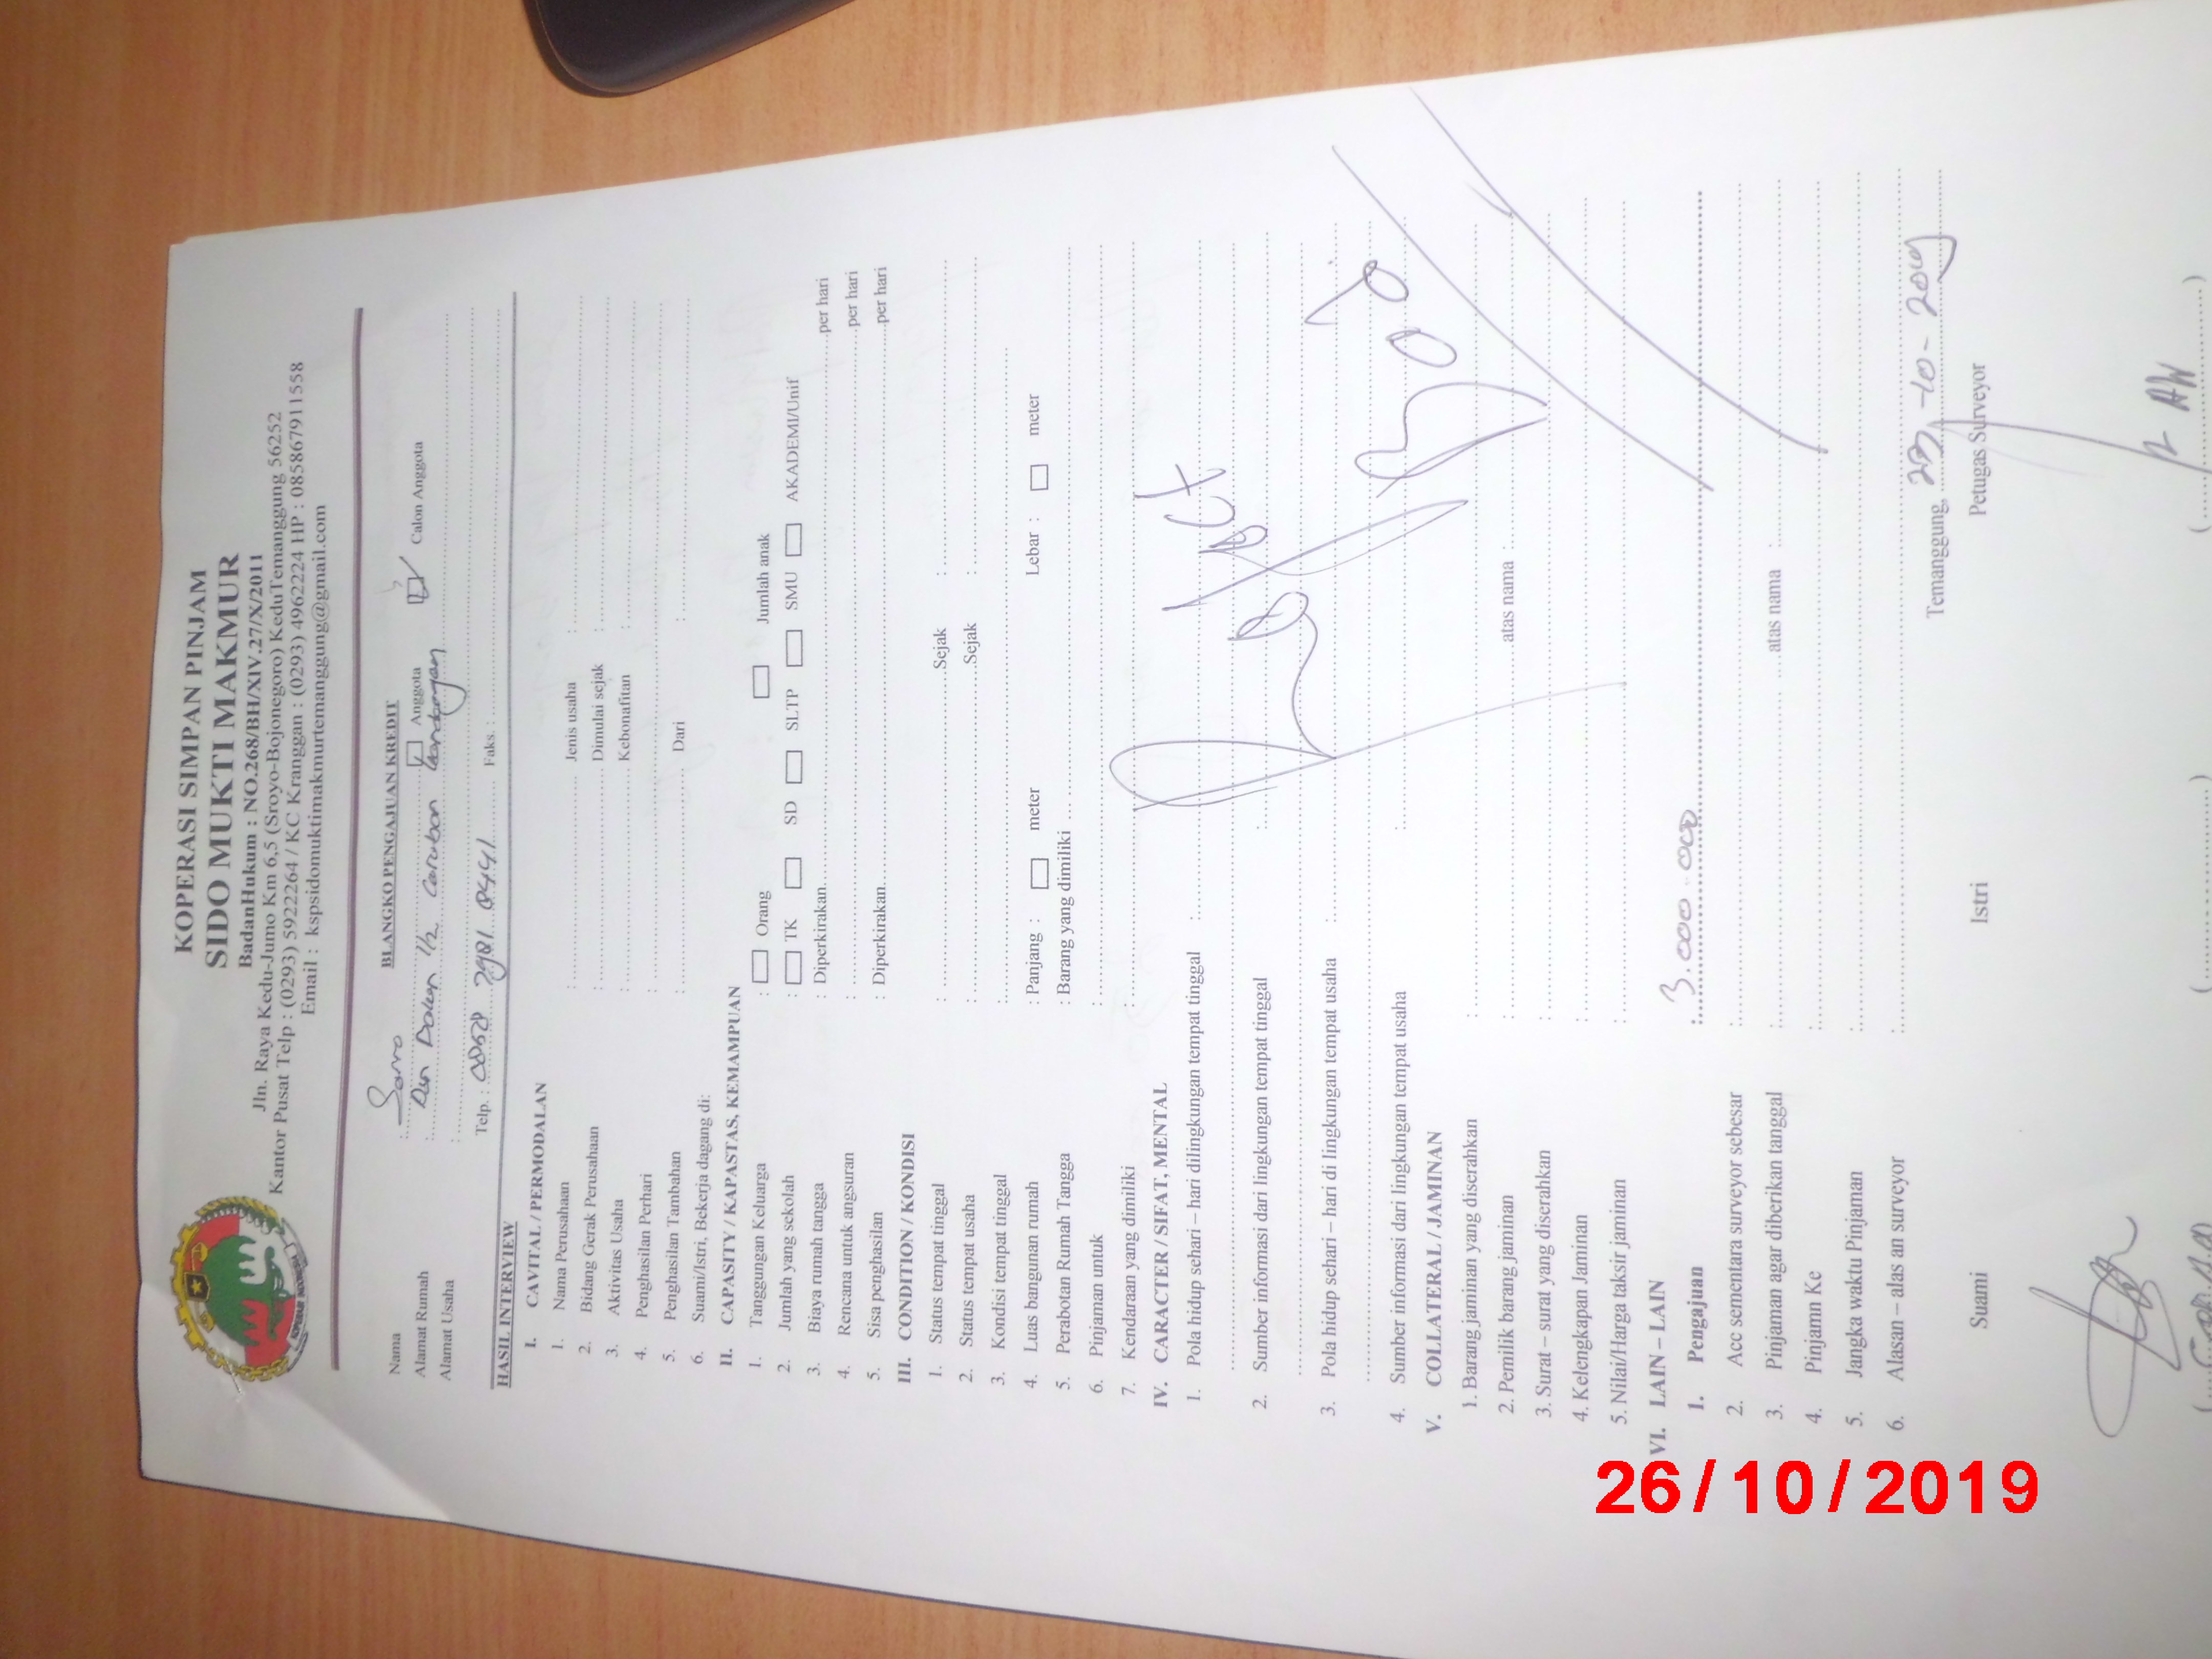 KOPERASI SIMPAN PINJAM
SIDO MUKTI MAKMUR
BadanHukum : NO.268/BH/XIV.27/X/2011
Jln. Raya Kedu-Jumo Km 6,5 (Sroyo-Bojonegoro) KeduTemanggung 56252
Kantor Pusat Telp : (0293) 5922264 / KC Kranggan : (0293) 4962224 HP : 085867911558
Email : kspsidomuktimakmurtemanggung@gmail.com
KOPERASI INDONESIA
BLANGKO PENGAJUAN KREDIT
Nama : Anggota Calon Anggota
Alamat Rumah : 1/2 Caruban Kandangan
Alamat Usaha :
Telp. : Faks. :
HASIL INTERVIEW
I. CAVITAL / PERMODALAN
1. Nama Perusahaan : Jenis usaha :
2. Bidang Gerak Perusahaan : Dimulai sejak :
3. Aktivitas Usaha : Kebonafitan :
4. Penghasilan Perhari :
5. Penghasilan Tambahan : Dari :
6. Suami/Istri, Bekerja dagang di:
II. CAPASITY / KAPASTAS, KEMAMPUAN
1. Tanggungan Keluarga : Orang Jumlah anak
2. Jumlah yang sekolah : TK SD SLTP SMU AKADEMI/Unif
3. Biaya rumah tangga : Diperkirakan per hari
4. Rencana untuk angsuran : per hari
5. Sisa penghasilan : Diperkirakan per hari
III. CONDITION / KONDISI
1. Status tempat tinggal : Sejak :
2. Status tempat usaha : Sejak :
3. Kondisi tempat tinggal :
4. Luas bangunan rumah : Panjang : meter Lebar : meter
5. Perabotan Rumah Tangga : Barang yang dimiliki
6. Pinjaman untuk :
7. Kendaraan yang dimiliki :
IV. CARACTER / SIFAT, MENTAL
1. Pola hidup sehari – hari dilingkungan tempat tinggal :
2. Sumber informasi dari lingkungan tempat tinggal :
3. Pola hidup sehari – hari di lingkungan tempat usaha :
4. Sumber informasi dari lingkungan tempat usaha :
V. COLLATERAL / JAMINAN
1. Barang jaminan yang diserahkan :
2. Pemilik barang jaminan : atas nama :
3. Surat – surat yang diserahkan :
4. Kelengkapan Jaminan :
5. Nilai/Harga taksir jaminan :
VI. LAIN – LAIN
1. Pengajuan : 3.000.000
2. Acc sementara surveyor sebesar :
3. Pinjaman agar diberikan tanggal : atas nama :
4. Pinjamn Ke :
5. Jangka waktu Pinjaman :
6. Alasan – alas an surveyor :
Temanggung, -10-2019
Suami Istri Petugas Surveyor
26/10/2019